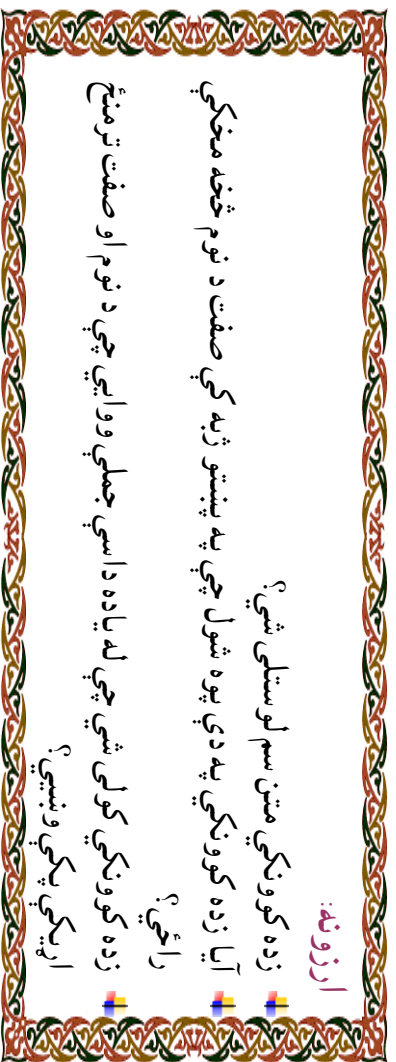 ارزونه:
زده کوونکي متن سم لوستلی شي؟
آیا زده کوونکي په دې پوه شول چې په پښتو ژبه کې صفت د نوم څخه مخکې
راځي؟
زده کوونکي کولی شي چې له یاده داسې جملې ووایي چې د نوم او صفت ترمنځ
اړیکې پکې وښیي؟